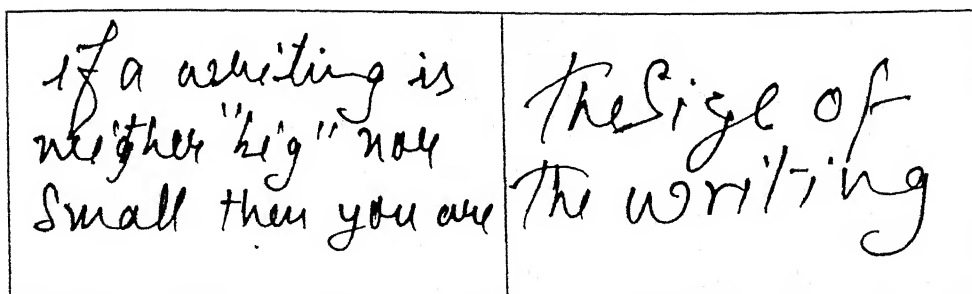 if a writing is
neither "big" nor
small then you are
the Size of
the writing